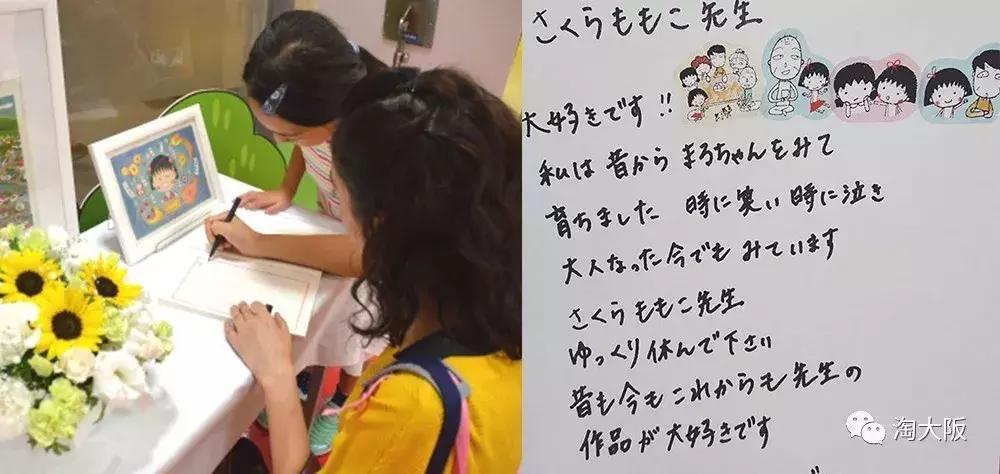 さくらももこ先生
大好きです!!
私は昔から まるちゃんをみて
育ちました 時に笑い 時に泣き
大人なった今でも みています
さくらももこ先生
ゆっくり休んで下さい
昔も今もこれからも先生の
作品が大好きです
淘大阪